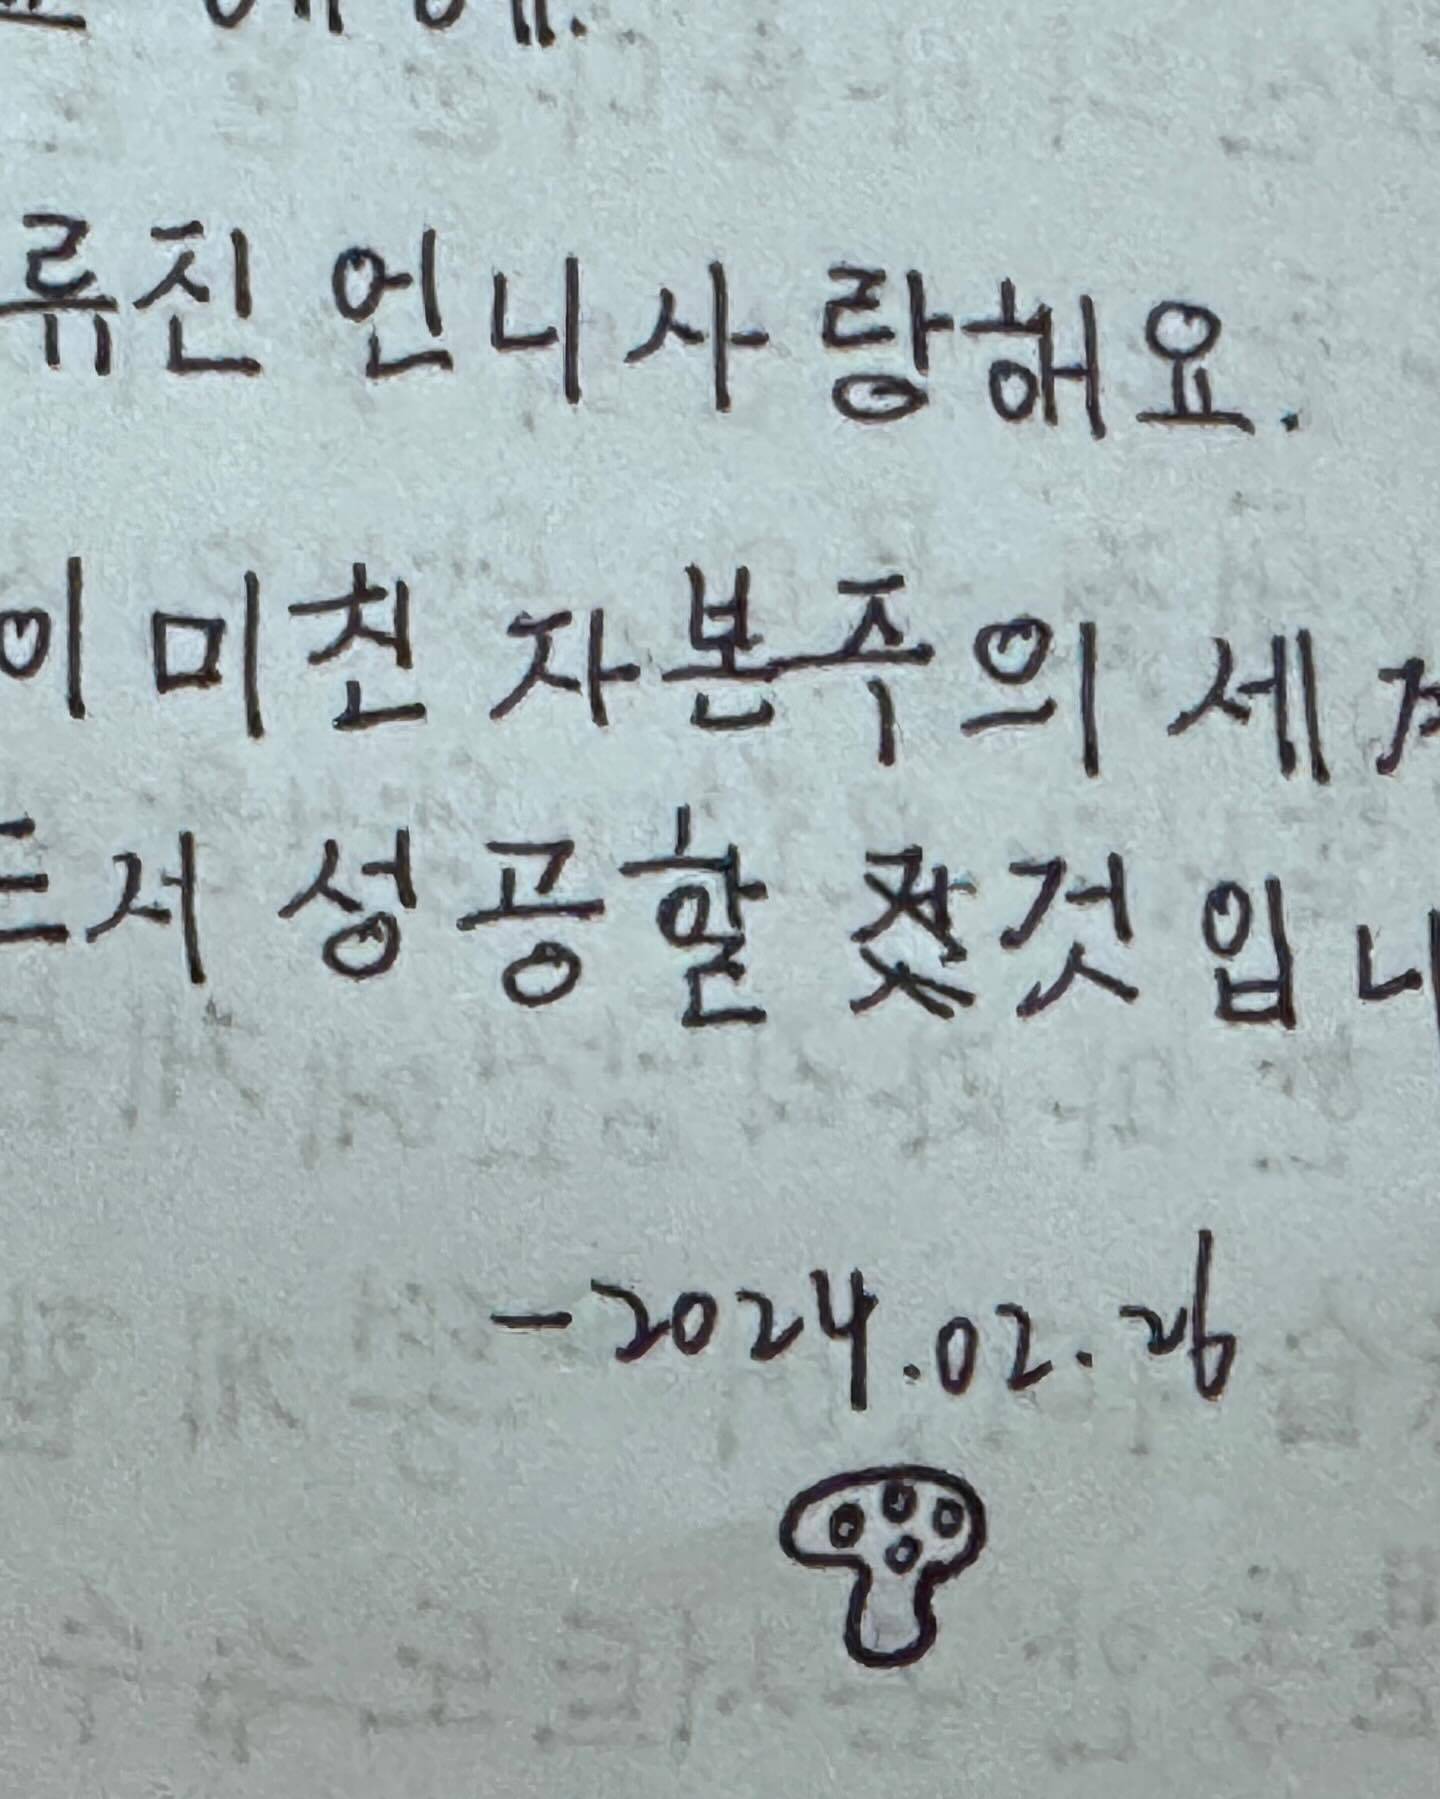 류진 언니 사랑해요.
이 미친 자본주의 세계
드저 성공할 것입니
-2024.02.26